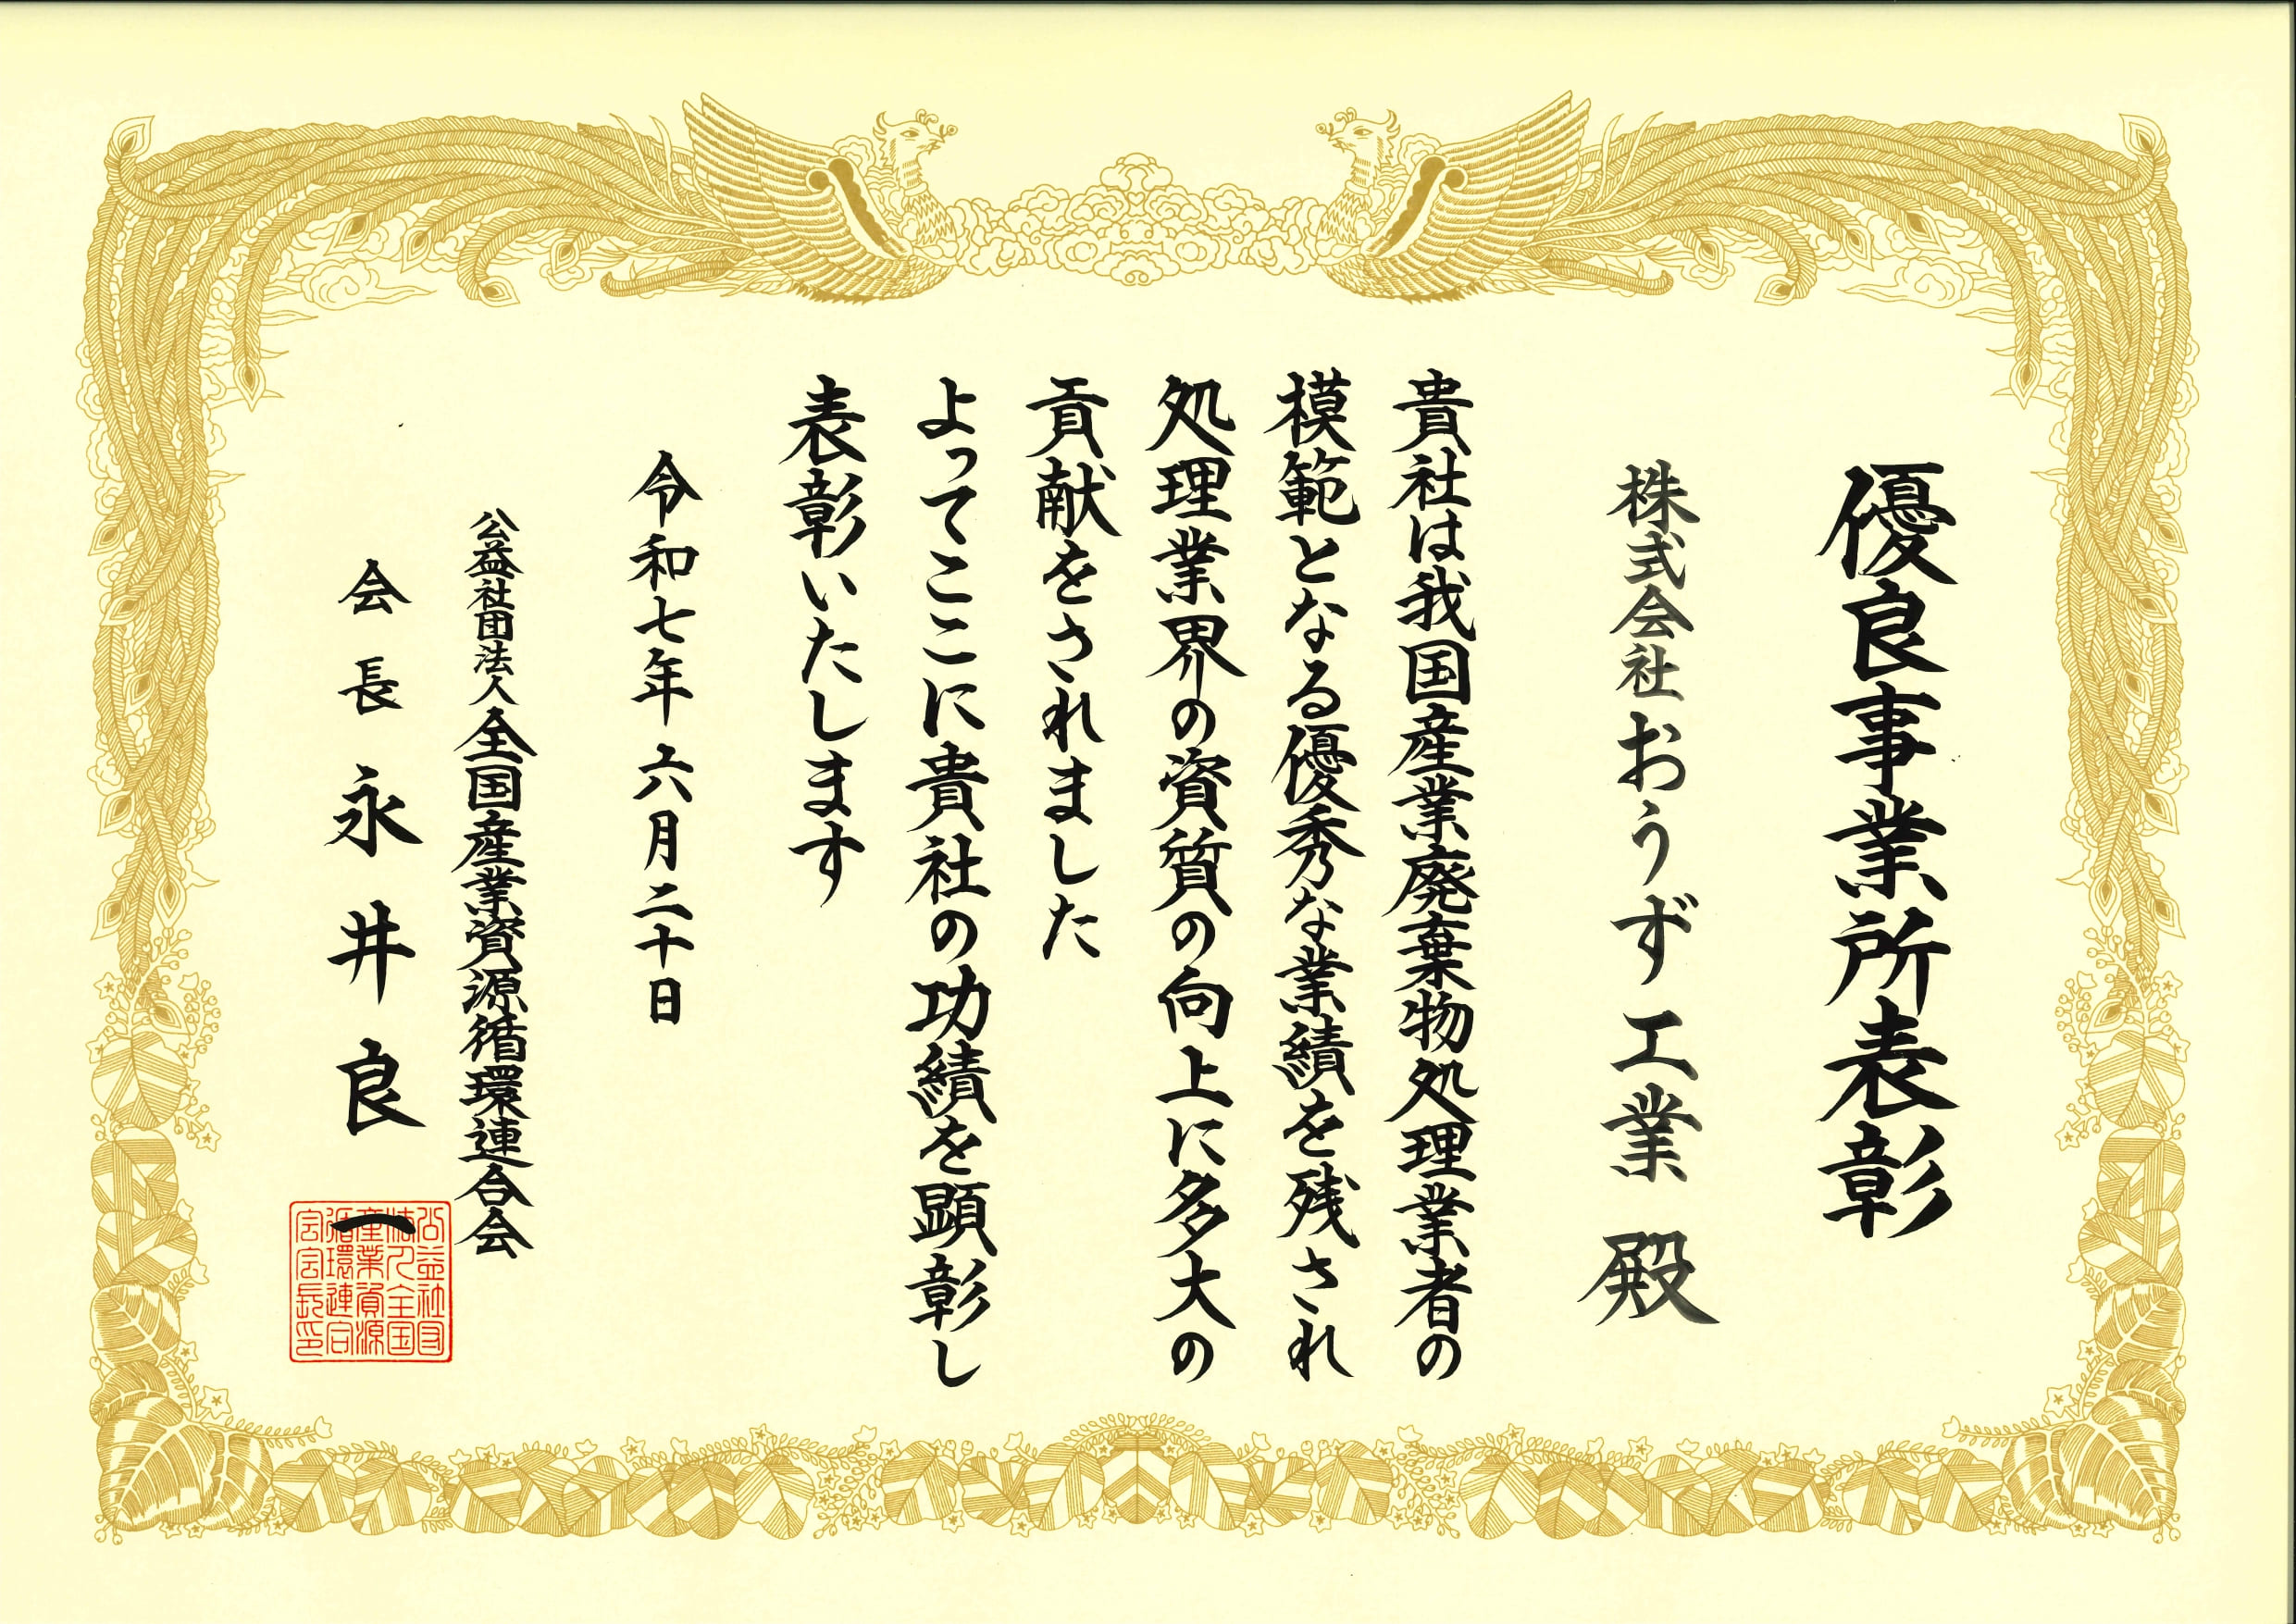 優良事業所表彰
株式会社おうず工業 殿
貴社は我国産業廃棄物処理業者の
模範となる優秀な業績を残され
処理業界の資質の向上に多大の
貢献をされました
よってここに貴社の功績を顕彰し
表彰いたします
令和七年六月二十日
公益社団法人全国産業資源循環連合会
会長 永井良一
公益社団
法人全国
産業資源
循環連合
会会長印